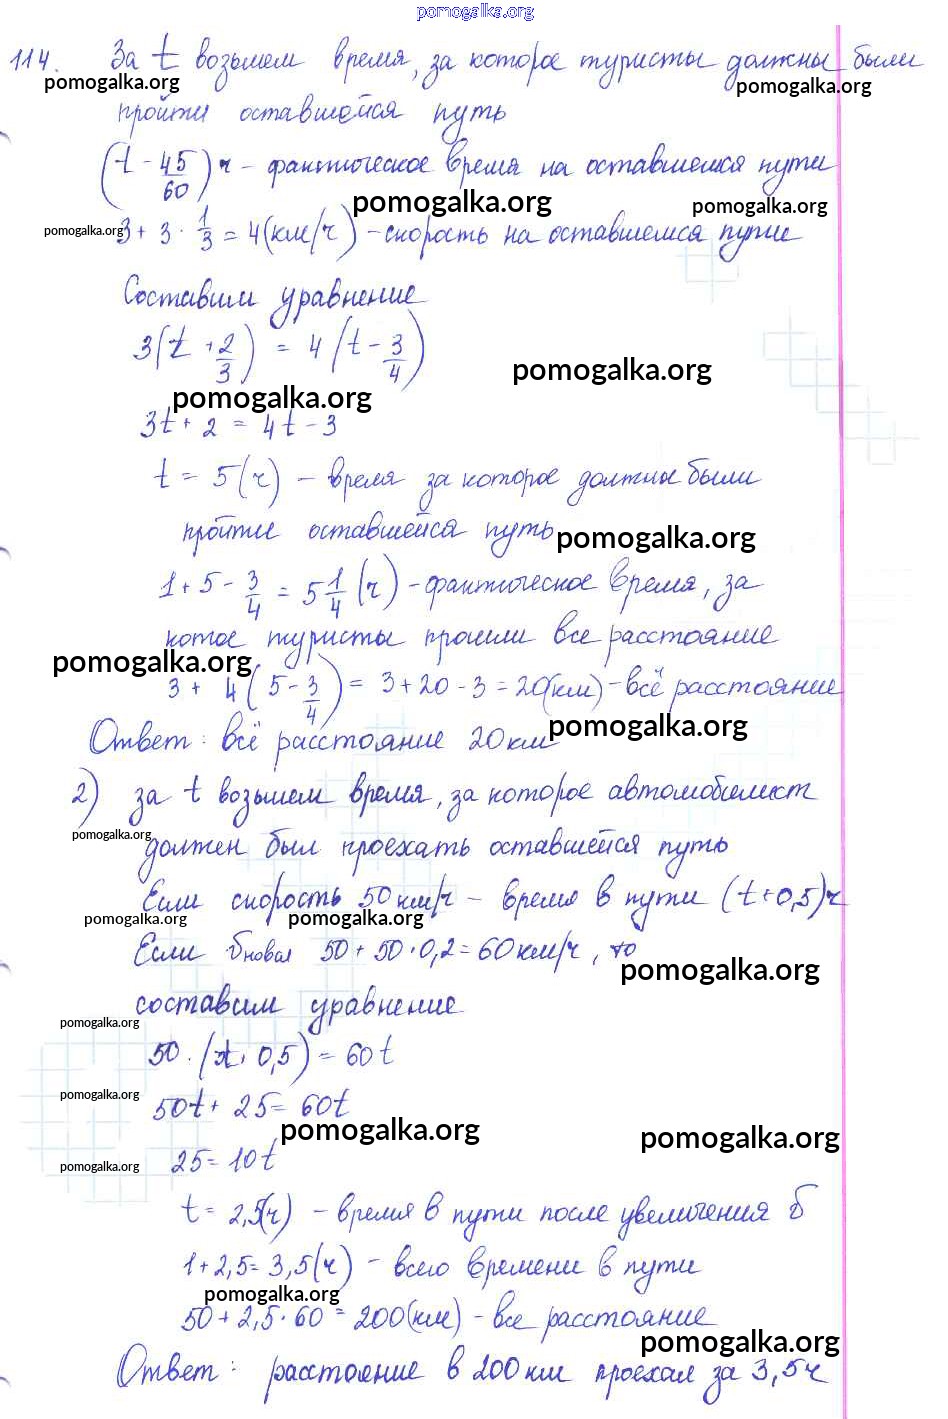 pomogalka.org
114. За t возьмем время, за которое туристы должны были
pomogalka.org pomogalka.org
пройти оставшейся путь
(t - 45/60) ч - фактическое время на оставшемся пути
pomogalka.org pomogalka.org
pomogalka.org 3 + 3 · 1/3 = 4 (км/ч) - скорость на оставшемся пути
Составим уравнение
3(t + 2/3) = 4(t - 3/4)
pomogalka.org
pomogalka.org
3t + 2 = 4t - 3
t = 5 (ч) - время за которое должны были
пройти оставшейся путь
pomogalka.org
1 + 5 - 3/4 = 5 1/4 (ч) - фактическое время, за
котое туристы прошли все расстояние
pomogalka.org
3 + 4(5 - 3/4) = 3 + 20 - 3 = 20(км) - всё расстояние
pomogalka.org
Ответ: всё расстояние 20 км
2) за t возьмем время, за которое автомобилист
pomogalka.org
должен был проехать оставшейся путь
Если скорость 50 км/ч - время в пути (t + 0,5) ч
pomogalka.org pomogalka.org
Если 50 + 50 · 0,2 = 60 км/ч, то
pomogalka.org
составим уравнение
pomogalka.org
50 · (t + 0,5) = 60t
pomogalka.org
50t + 25 = 60t
pomogalka.org pomogalka.org
25 = 10t
pomogalka.org
t = 2,5(ч) - время в пути после увеличения
1 + 2,5 = 3,5 (ч) - всего времени в пути
pomogalka.org
50 + 2,5 · 60 = 200(км) - все расстояние
pomogalka.org
Ответ: расстояние в 200 км проехал за 3,5 ч